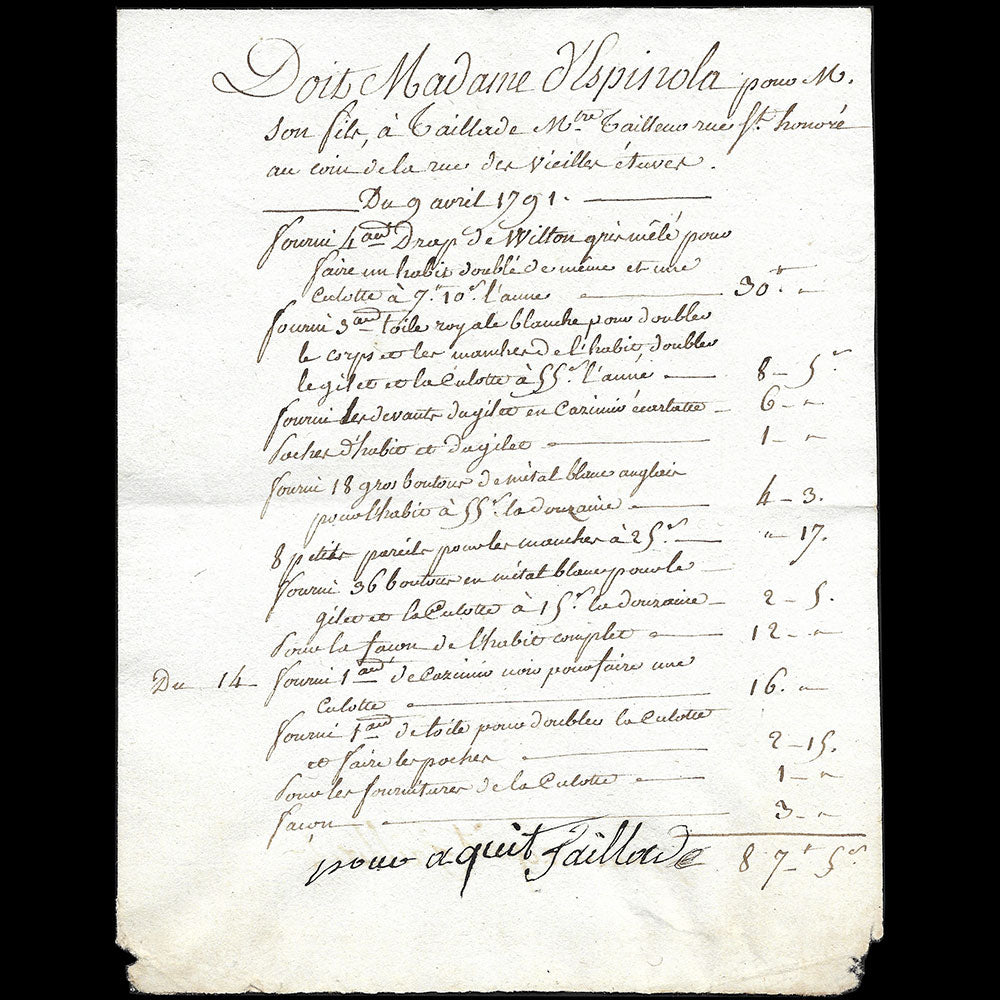 Doit Madame d'Espinola pour M.
son fils, à Taillade Mtre Tailleur rue St. honoré
au coin de la rue des vieilles étuves.
Du 9 avril 1791.
fourni 4 aues Drap de Wilton gris mêlé pour
faire un habit doublé de même et une
Culotte à 7tt 10s l'aune 30tt "
fourni 3 aues toile royale blanche pour doubler
le corps et les manches de l'habit, doubler
le gilet et la Culotte à 55s l'aune 8 - 5s
fourni les devants du gilet en Cazimir écarlatte 6 - "
Poches d'habit et du gilet 1 - "
fourni 18 gros boutons de métal blanc anglais
pour l'habit à 55s la douzaine 4 - 3.
8 petits pareils pour les manches à 25s " 17.
fourni 36 boutons en métal blanc pour le
gilet et la Culotte à 15s la douzaine 2 - 5.
Pour la façon de l'habit complet 12 - "
Du 14 - fourni 1 aue de Cazimir noir pour faire une
Culotte 16. "
fourni 1 aue de toile pour doubler la Culotte
et faire les poches 2 - 15.
Pour les fournitures de la Culotte 1 - "
façon 3 - "
pour aquit Taillade 87tt 5s